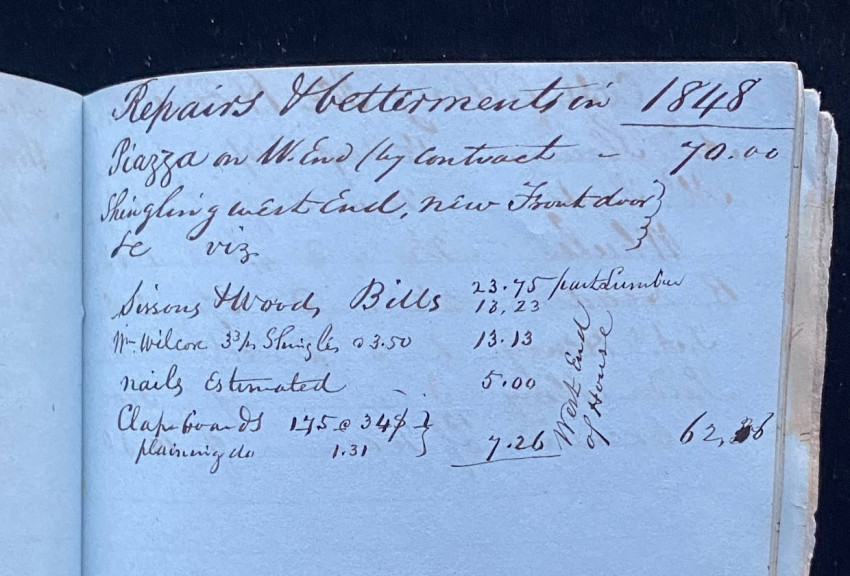 Repairs & betterments in 1848
Piazza on W. End (by contract - 70.00
Shingling west End, new Front door
&c viz
Sissons & Woods Bills 23.75 part Lumber
13.23
Wm Wilcox Shingles @ 3.50 13.13
nails Estimated 5.00
Clapboards 175 @ 34$
plaining do 1.31 7.26
West End
of House